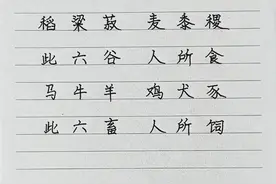 稻 粱 菽 麦 黍 稷
此 六 谷 人 所 食
马 牛 羊 鸡 犬 豕
此 六 畜 人 所 饲